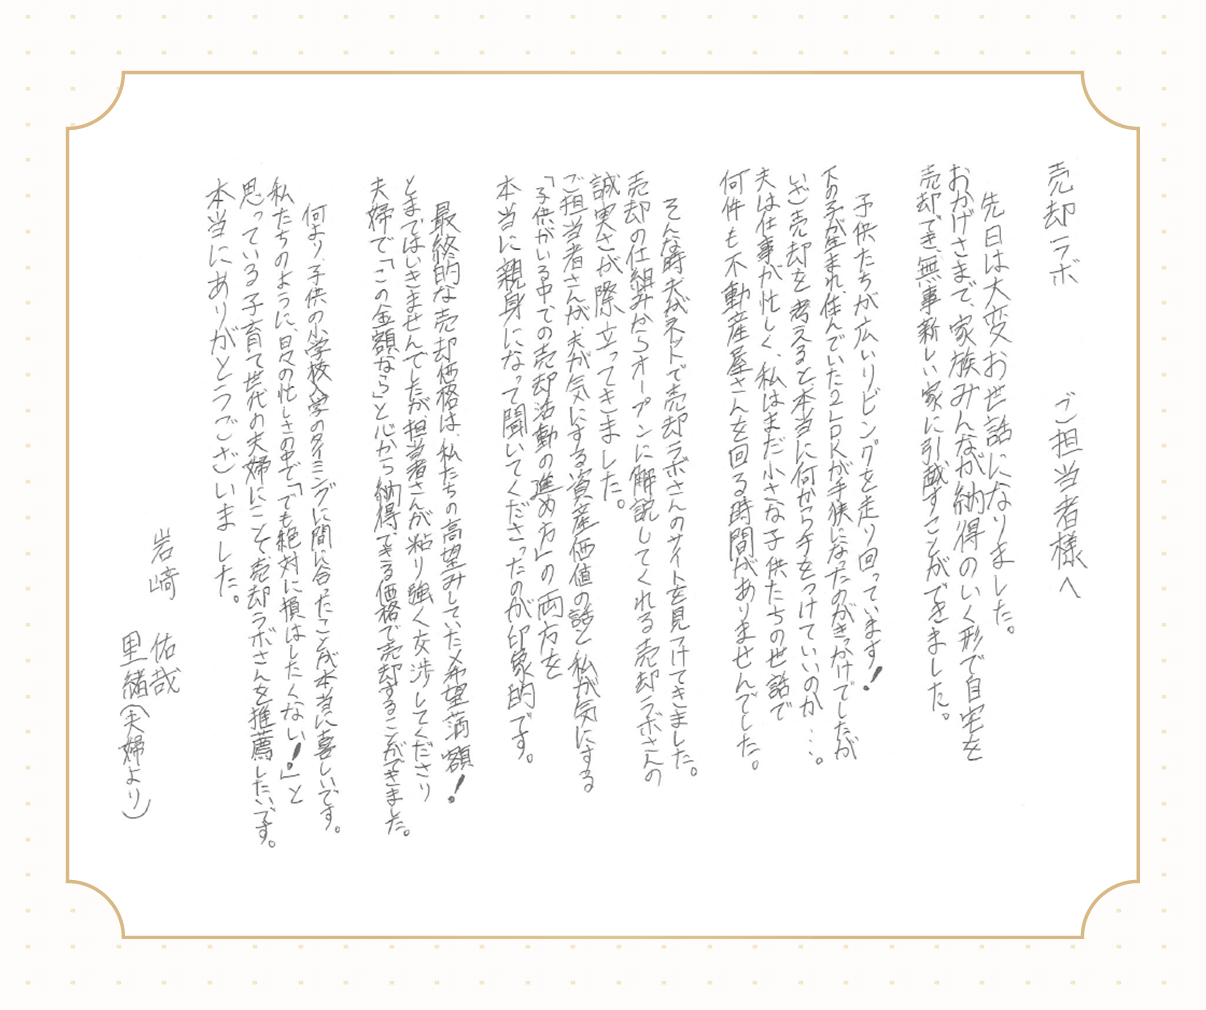 売却ラボ　ご担当者様へ
先日は大変お世話になりました。
おかげさまで、家族みんなが納得のいく形で自宅を
売却でき、無事新しい家に引越すことができました。
子供たちが広いリビングを走り回っています!
下の子が生まれ、住んでいた2LDKが手狭になったのがきっかけでしたが
いざ売却を考えると、本当に何から手をつけていいのか…。
夫は仕事が忙しく、私はまだ小さな子供たちの世話で
何件も不動産屋さんを回る時間がありませんでした。
そんな時、夫がネットで売却ラボさんのサイトを見つけてきました。
売却の仕組みからオープンに解説してくれる売却ラボさんの
誠実さが際立ってきました。
ご担当者さんが、夫が気にする資産価値の話と、私が気にする
「子供がいる中での売却活動の進め方」の両方を
本当に親身になって聞いてくださったのが印象的です。
最終的な売却価格は、私たちの高望みしていた希望満額!
とまではいきませんでしたが、担当者さんが粘り強く交渉してくださり
夫婦で「この金額なら」と心から納得できる価格で売却することができました。
何より、子供の小学校入学のタイミングに間に合ったことが本当に喜しいです。
私たちのように、日々の忙しさの中で「でも絶対に損はしたくない!」と
思っている子育て世代の夫婦にこそ、売却ラボさんを推薦したいです。
本当にありがとうございました。
岩﨑　佑哉
里緒(夫婦より)